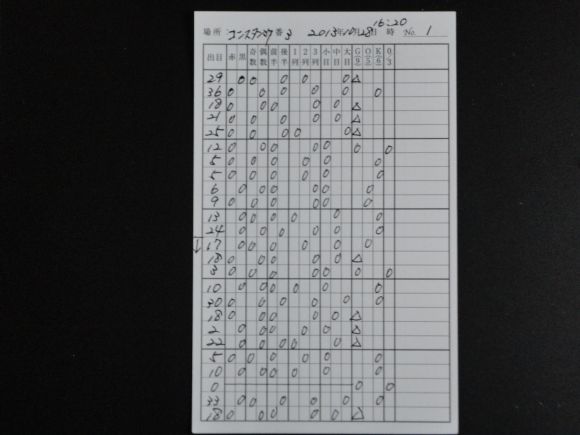 16:20
場所: コンスタンツァ 番 3 2013年10月28日 時 No. 1
出目 赤 黒 奇数 偶数 前半 後半 1列 2列 3列 小目 中目 大目 G/9 O/5 K/6 0.3
29 0 0 0 0 0 △
36 0 0 0 0 0 0
18 0 0 0 0 0 △
21 0 0 0 0 0 △
25 0 0 0 0 0 △
12 0 0 0 0 0 0 0
5 0 0 0 0 0 0
5 0 0 0 0 0 0
6 0 0 0 0 0 0
9 0 0 0 0 0 0
13 0 0 0 0 0 0
24 0 0 0 0 0 0
↓ 17 0 0 0 0 0 0
18 0 0 0 0 0 △
3 0 0 0 0 0 0 0
10 0 0 0 0 0 0
30 0 0 0 0 0 0
18 0 0 0 0 0 △
2 0 0 0 0 0 △
22 0 0 0 0 0 △
5 0 0 0 0 0 0
10 0 0 0 0 0 0
0 0 0
33 0 0 0 0 0 0
18 0 0 0 0 0 △